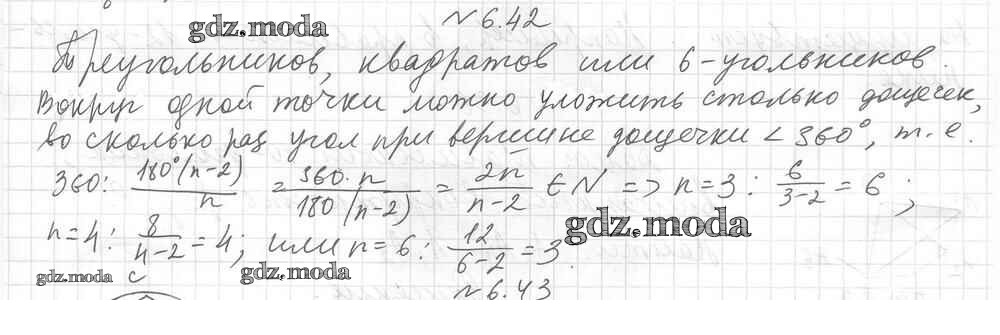 № 6.42
gdz.moda
Треугольников, квадратов или 6-угольников.
Вокруг одной точки можно уложить столько дощечек,
во сколько раз угол при вершине дощечки < 360°, т.е.
360: 180°(n-2)/n = 360·n/180(n-2) = 2n/n-2 ∈ N => n=3: 6/3-2 = 6;
n=4: 8/4-2 = 4; или n=6: 12/6-2 = 3.
gdz.moda
gdz.moda
c
gdz.moda
№ 6.43